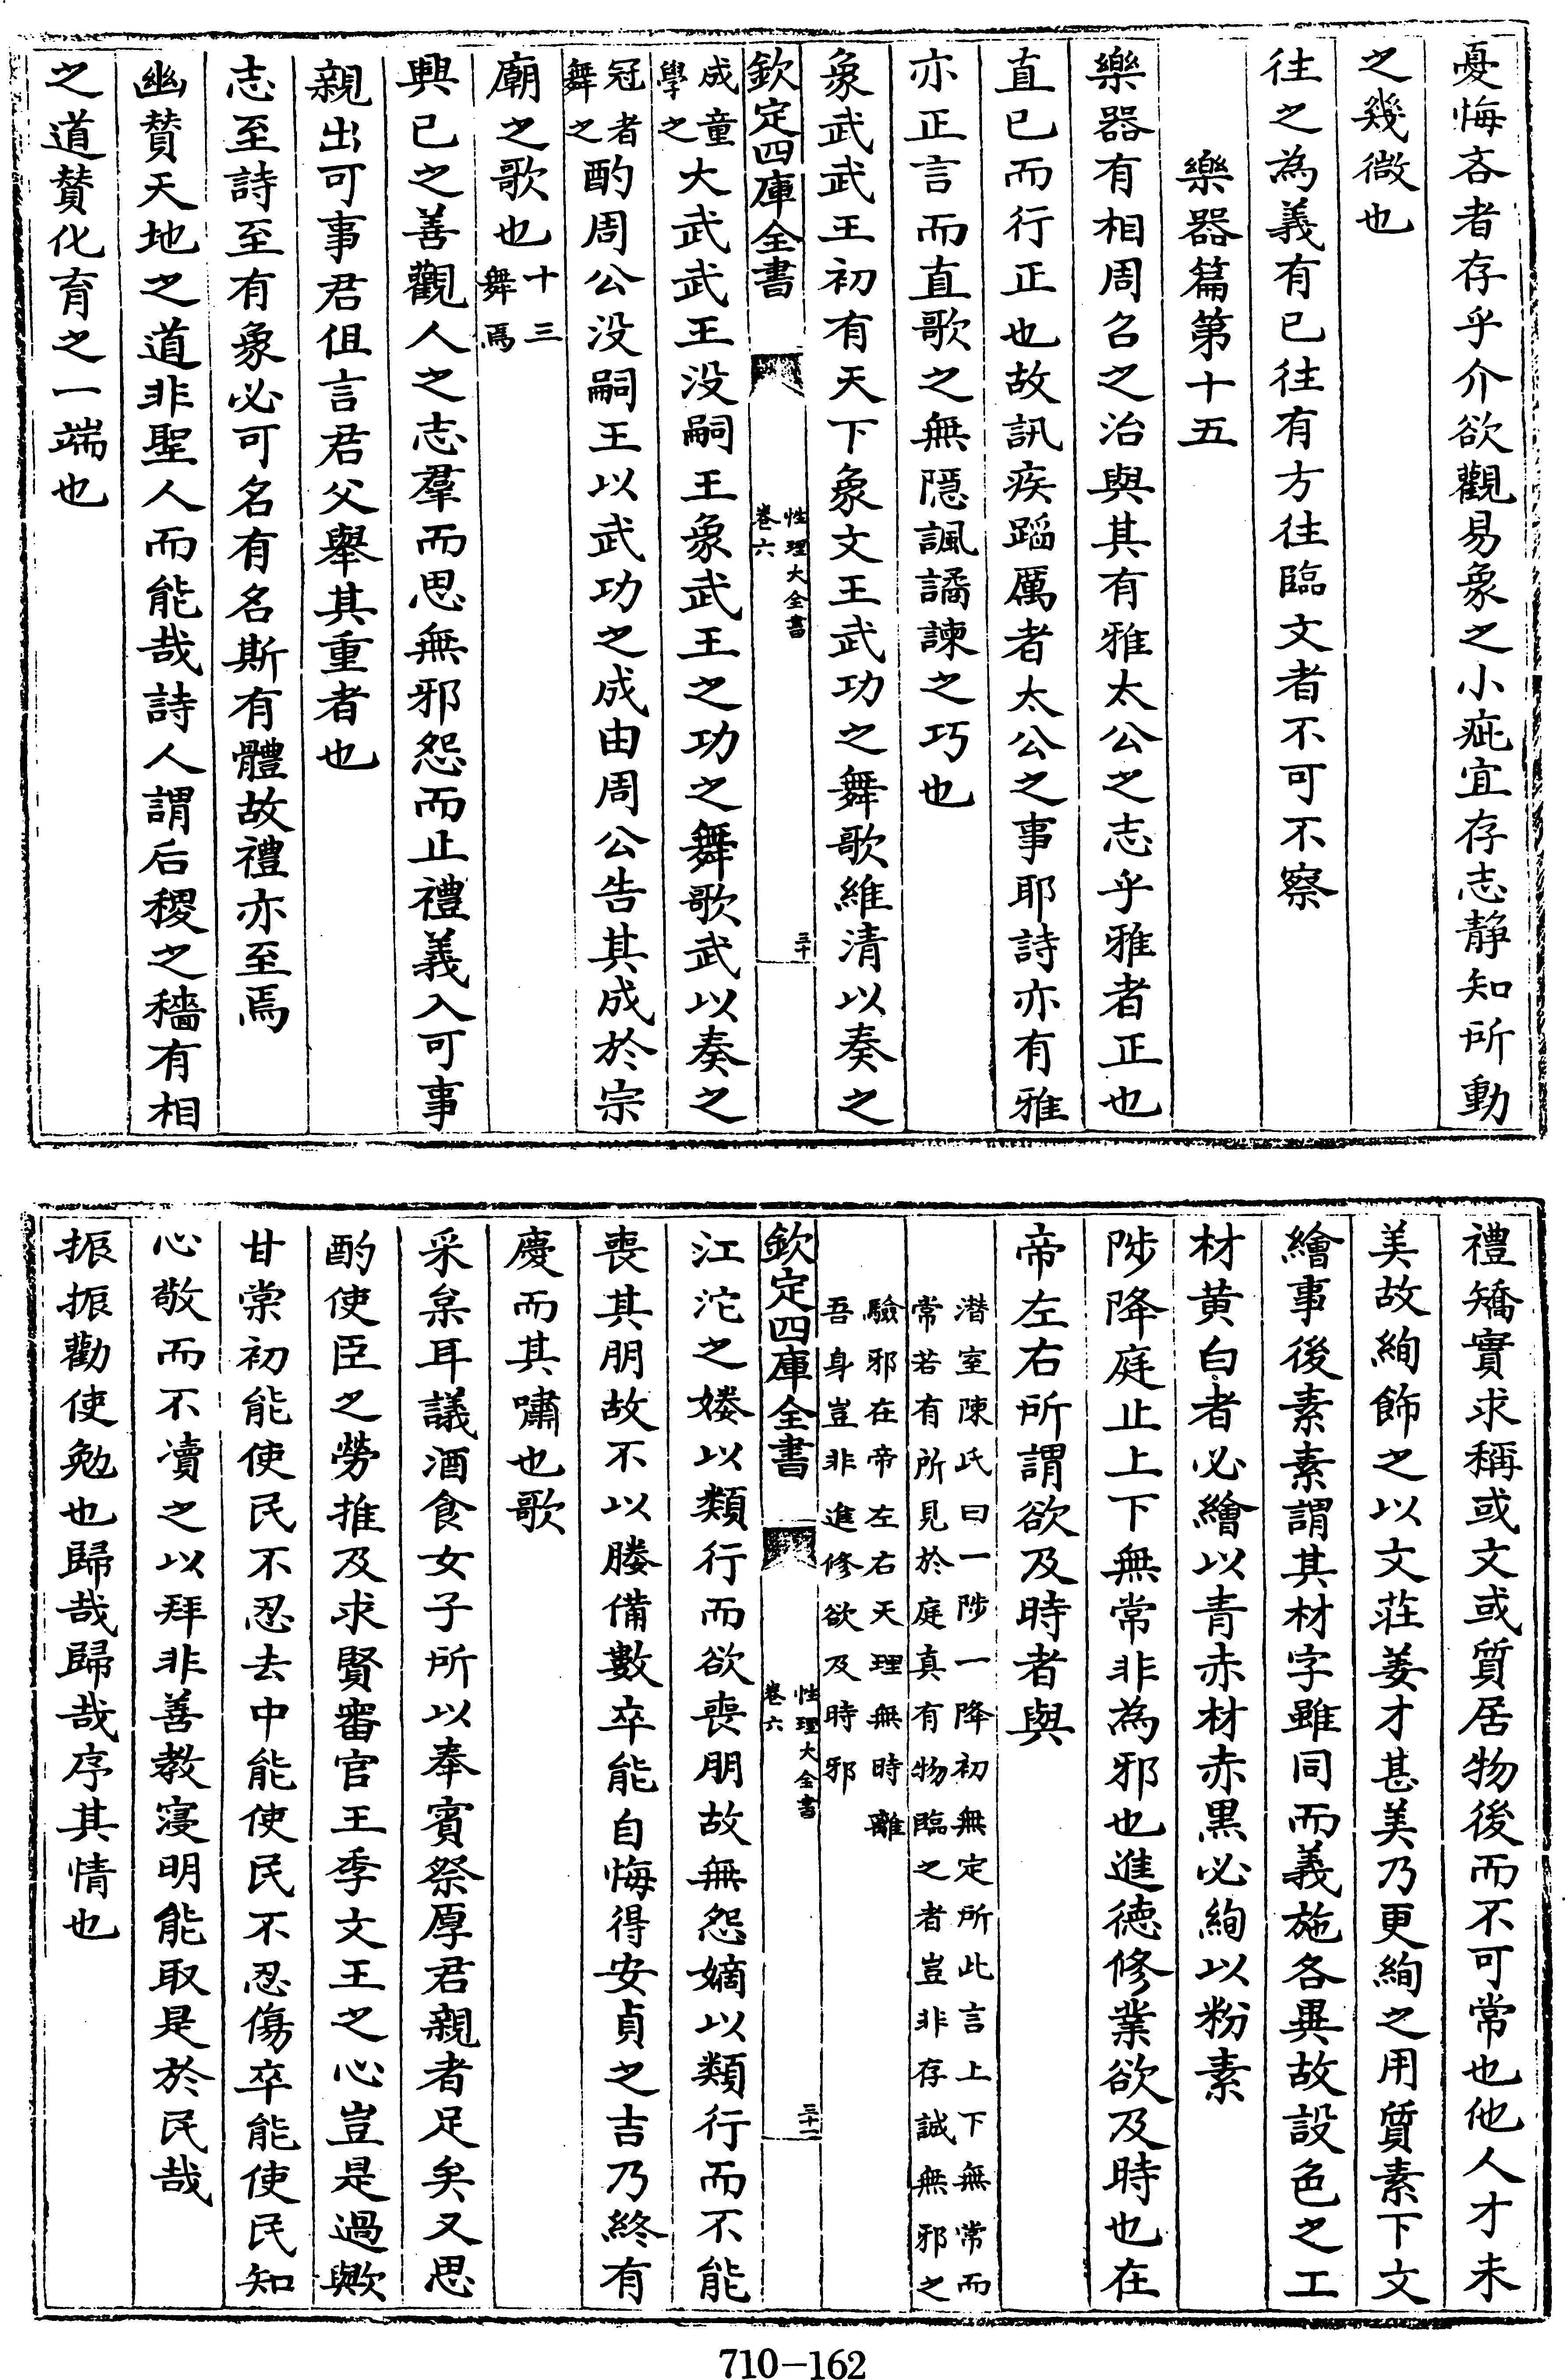 憂悔吝者存乎介欲觀易象之小疵宜存志靜知所動
之幾微也
往之為義有已往有方往臨文者不可不察
樂器篇第十五
樂器有相周召之治與其有雅太公之志乎雅者正也
直已而行正也故訊疾蹈厲者太公之事耶詩亦有雅
亦正言而直歌之無隱諷譎諫之巧也
象武武王初有天下象文王武功之舞歌維清以奏之
欽定四庫全書
性理大全書
卷六
三十
成童
學之
大武武王没嗣王象武王之功之舞歌武以奏之
冠者
舞之
酌周公没嗣王以武功之成由周公告其成於宗
廟之歌也
十三
舞焉
興已之善觀人之志羣而思無邪怨而止禮義入可事
親出可事君但言君父舉其重者也
志至詩至有象必可名有名斯有體故禮亦至焉
幽贊天地之道非聖人而能哉詩人謂后稷之穡有相
之道贊化育之一端也
禮矯實求稱或文或質居物後而不可常也他人才未
美故絢飾之以文莊姜才甚美乃更絢之用質素下文
繪事後素素謂其材字雖同而義施各異故設色之工
材黄白者必繪以青赤材赤黑必絢以粉素
陟降庭止上下無常非為邪也進德修業欲及時也在
帝左右所謂欲及時者與
潜室陳氏曰一陟一降初無定所此言上下無常而
常若有所見於庭真有物臨之者豈非存誠無邪之
驗邪在帝左右天理無時離
吾身豈非進修欲及時邪
欽定四庫全書
性理大全書
卷六
三十一
江沱之媵以類行而欲喪朋故無怨嫡以類行而不能
喪其朋故不以媵備數卒能自悔得安貞之吉乃終有
慶而其嘯也歌
采枲耳議酒食女子所以奉賓祭厚君親者足矣又思
酌使臣之勞推及求賢審官王季文王之心豈是過歟
甘棠初能使民不忍去中能使民不忍傷卒能使民知
心敬而不瀆之以拜非善教寖明能取是於民哉
振振勸使勉也歸哉歸哉序其情也
710-162